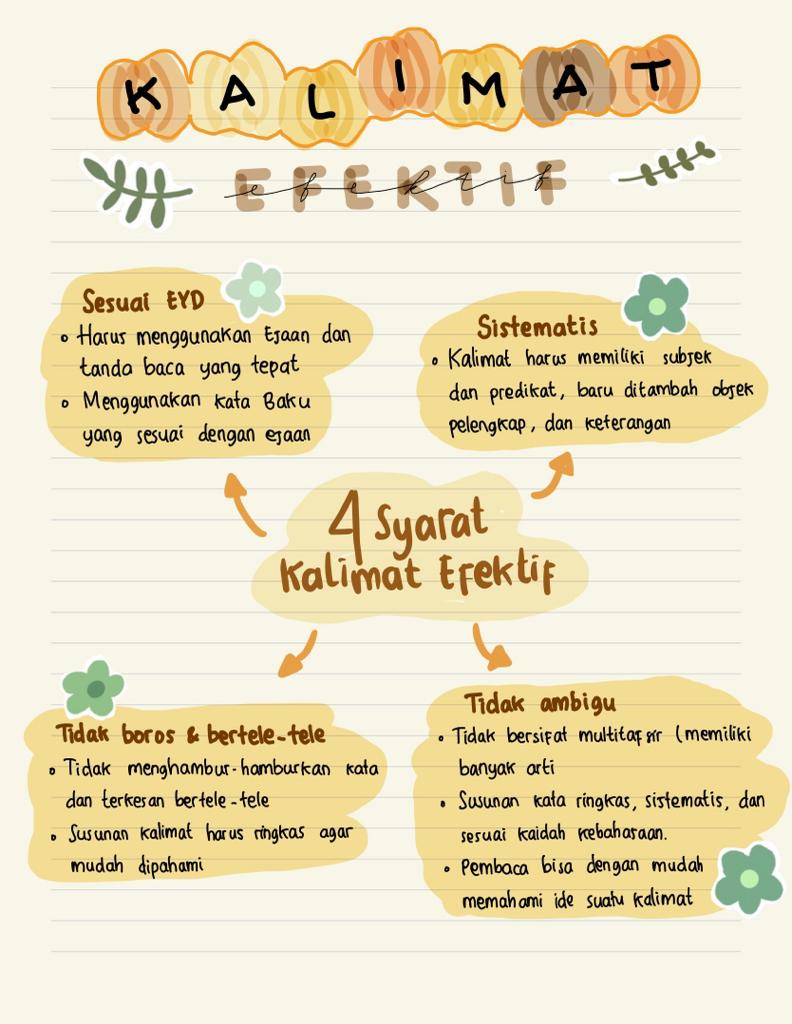 KALIMAT
EFEKTIF
efektif
Sesuai EYD
• Harus menggunakan Ejaan dan
tanda baca yang tepat
• Menggunakan kata Baku
yang sesuai dengan ejaan
Sistematis
• Kalimat harus memiliki subjek
dan predikat, baru ditambah objek
pelengkap, dan keterangan
4 Syarat
Kalimat Efektif
Tidak boros & bertele-tele
• Tidak menghambur-hamburkan kata
dan terkesan bertele-tele
• Susunan kalimat harus ringkas agar
mudah dipahami
Tidak ambigu
• Tidak bersifat multitafsir (memiliki
banyak arti
• Susunan kata ringkas, sistematis, dan
sesuai kaidah kebahasaan.
• Pembaca bisa dengan mudah
memahami ide suatu kalimat